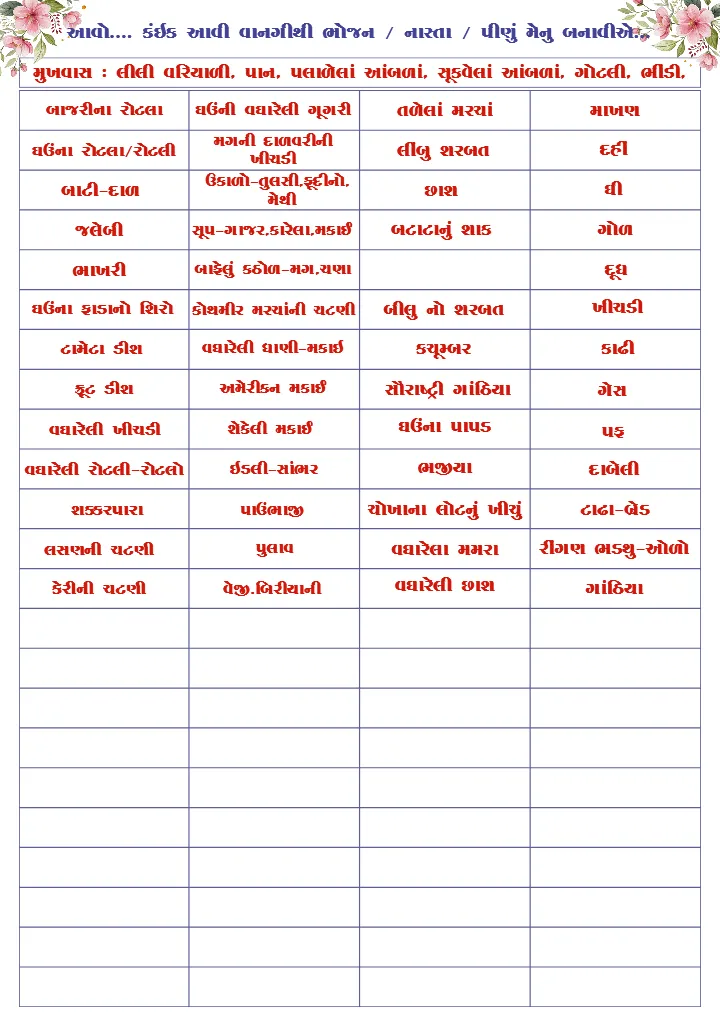 આવો.... કંઇક આવી વાનગીથી ભોજન / નાસ્તા / પીણું મેનુ બનાવીએ...
મુખવાસ : લીલી વરિયાળી, પાન, પલાળેલાં આંબળાં, સૂકવેલાં આંબળાં, ગોટલી, ભીંડી,
બાજરીના રોટલા ઘઉંની વઘારેલી ગૂગરી તળેલાં મરચાં માખણ
ઘઉંના રોટલા/રોટલી મગની દાળવરીની ખીચડી લીંબુ શરબત દહીં
બાટી-દાળ ઉકાળો-તુલસી,ફૂદીનો, મેથી છાશ ઘી
જલેબી સૂપ-ગાજર,કારેલા,મકાઈ બટાટાનું શાક ગોળ
ભાખરી બાફેલું કઠોળ-મગ,ચણા દૂધ
ઘઉંના ફાડાનો શિરો કોથમીર મરચાંની ચટણી બીલુ નો શરબત ખીચડી
ટામેટા ડીશ વઘારેલી ધાણી-મકાઇ કચૂમ્બર કાઢી
ફ્રૂટ ડીશ અમેરીકન મકાઈ સૌરાષ્ટ્રી ગાંઠિયા ગેસ
વઘારેલી ખીચડી શેકેલી મકાઈ ઘઉંના પાપડ પફ
વઘારેલી રોટલી-રોટલો ઈડલી-સાંભર ભજીયા દાબેલી
શક્કરપારા પાઉંભાજી ચોખાના લોટનું ખીચું ટાઢા-બ્રેડ
લસણની ચટણી પુલાવ વઘારેલા મમરા રીંગણ ભડથુ-ઓળો
કેરીની ચટણી વેજી.બિરીયાની વઘારેલી છાશ ગાંઠિયા